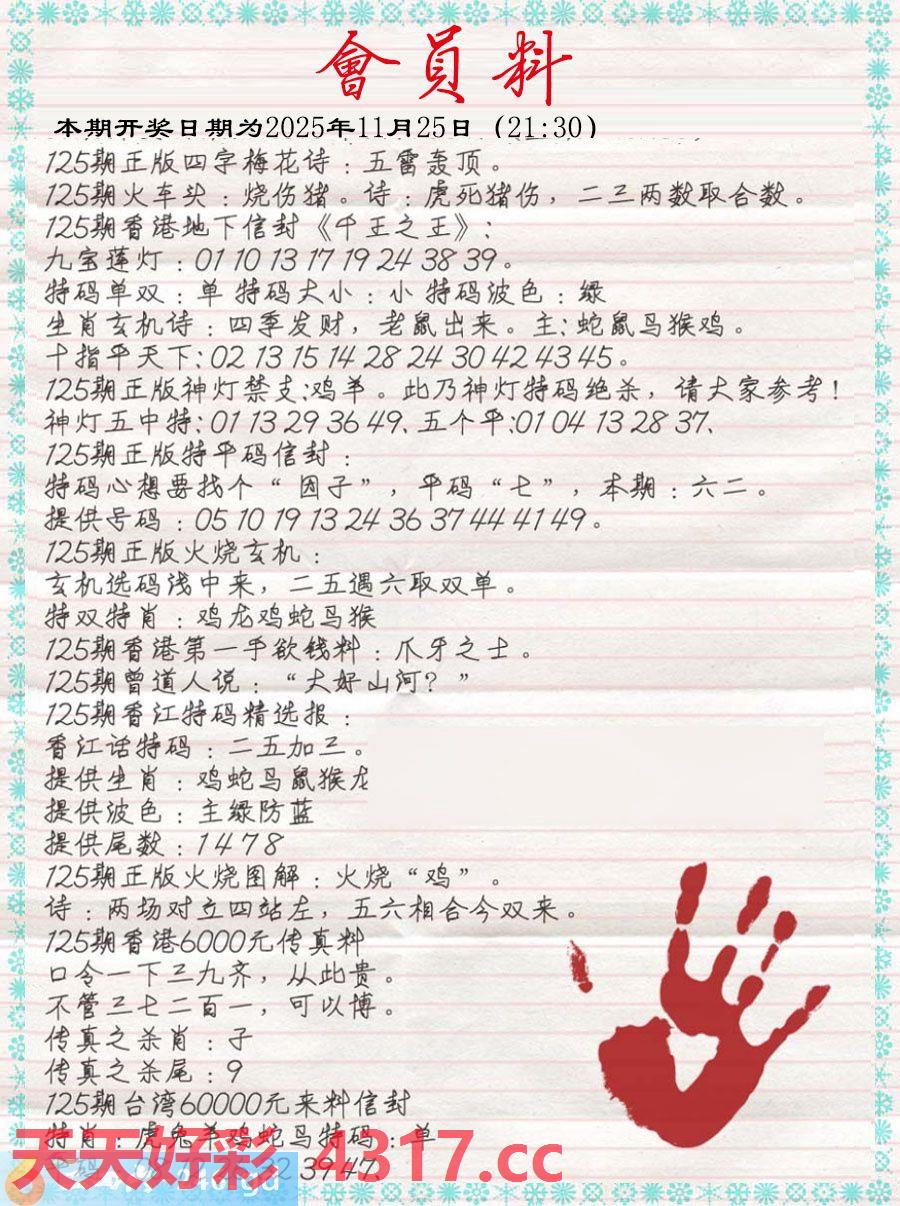 會員料
本期开奖日期为2025年11月25日（21:30）
125期正版四字梅花诗：五雷轰顶。
125期火车头：烧伤猪。诗：虎死猪伤，二三两数取合数。
125期香港地下信封《千王之王》：
九宝莲灯：01 10 13 17 19 24 38 39。
特码单双：单 特码大小：小 特码波色：绿
生肖玄机诗：四季发财，老鼠出来。主:蛇鼠马猴鸡。
十指平天下:02 13 15 14 28 24 30 42 43 45。
125期正版神灯禁支:鸡羊。此乃神灯特码绝杀，请大家参考！
神灯五中特:01 13 29 36 49、五个平:01 04 13 28 37、
125期正版特平码信封：
特码心想要找个“因子”，平码“七”，本期：六二。
提供号码：05 10 19 13 24 36 37 44 41 49。
125期正版火烧玄机：
玄机选码浅中来，二五遇六取双单。
特双特肖：鸡龙鸡蛇马猴
125期香港第一手欲钱料：爪牙之士。
125期曾道人说：“大好山河？”
125期香江特码精选报：
香江话特码：二五加三。
提供生肖：鸡蛇马鼠猴龙
提供波色：主绿防蓝
提供尾数：1 4 7 8
125期正版火烧图解：火烧“鸡”。
诗：两场对立四站左，五六相合今双来。
125期香港6000元传真料
口令一下三九齐，从此贵。
不管三七二百一，可以博。
传真之杀肖：子
传真之杀尾：9
125期台湾60000元来料信封
特肖：虎兔羊鸡蛇马特码：单
天天好彩 4317.cc
39 47、